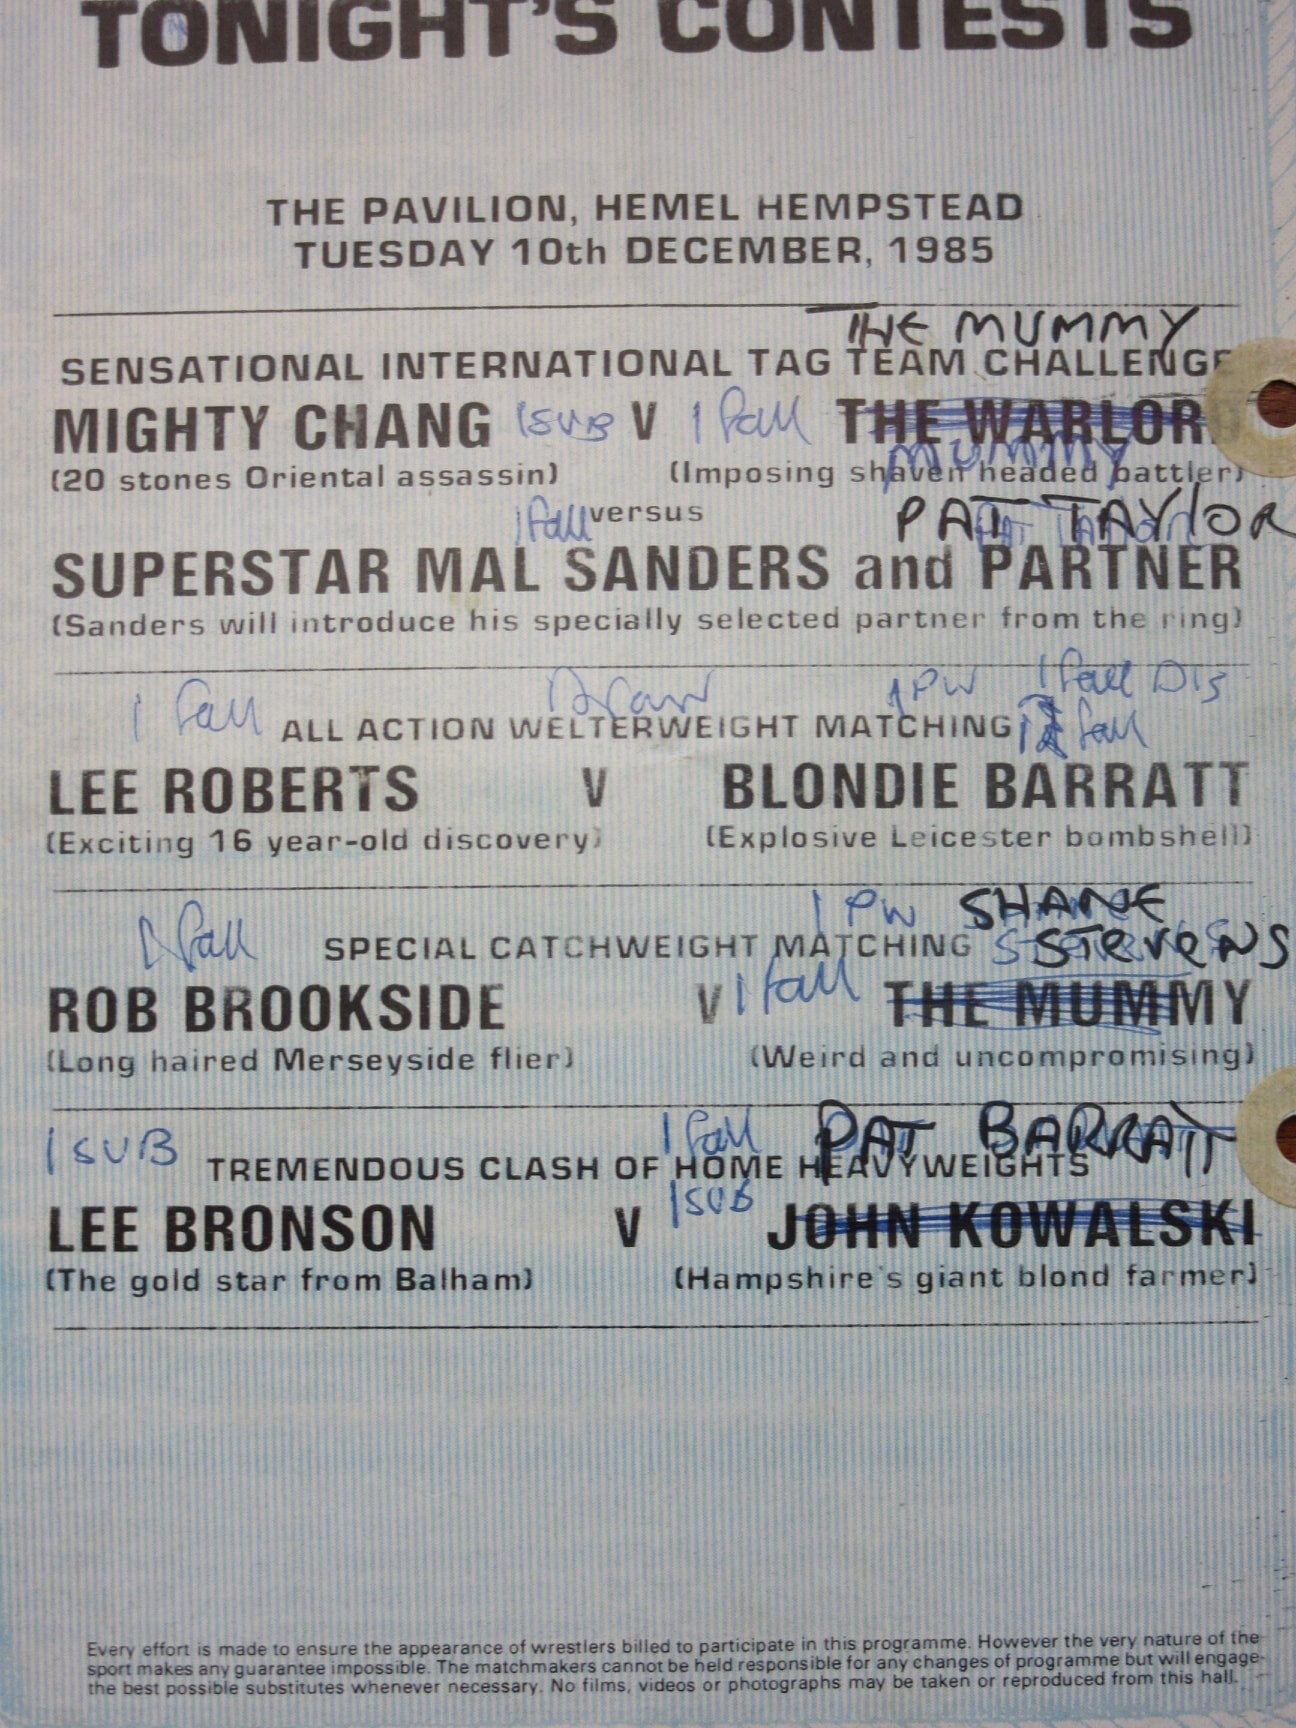 TONIGHT'S CONTESTS
THE PAVILION, HEMEL HEMPSTEAD
TUESDAY 10th DECEMBER, 1985
THE MUMMY
SENSATIONAL INTERNATIONAL TAG TEAM CHALLENGE
MIGHTY CHANG 1 SUB V 1 fall THE WARLORD
MUMMY
(20 stones Oriental assassin) (Imposing shaven headed battler)
1 fall versus PAT TAYlOR
SUPERSTAR MAL SANDERS and PARTNER
(Sanders will introduce his specially selected partner from the ring)
1 fall Draw 1 PW 1 fall DIS
ALL ACTION WELTERWEIGHT MATCHING fall
LEE ROBERTS V BLONDIE BARRATT
(Exciting 16 year-old discovery) (Explosive Leicester bombshell)
1 fall 1 PW SHANE
SPECIAL CATCHWEIGHT MATCHING STevenS
ROB BROOKSIDE V 1 fall THE MUMMY
(Long haired Merseyside flier) (Weird and uncompromising)
1 SUB 1 fall PAT BARRATT
TREMENDOUS CLASH OF HOME HEAVYWEIGHTS
LEE BRONSON V 1 SUB JOHN KOWALSKI
(The gold star from Balham) (Hampshire's giant blond farmer)
Every effort is made to ensure the appearance of wrestlers billed to participate in this programme. However the very nature of the
sport makes any guarantee impossible. The matchmakers cannot be held responsible for any changes of programme but will engage
the best possible substitutes whenever necessary. No films, videos or photographs may be taken or reproduced from this hall.